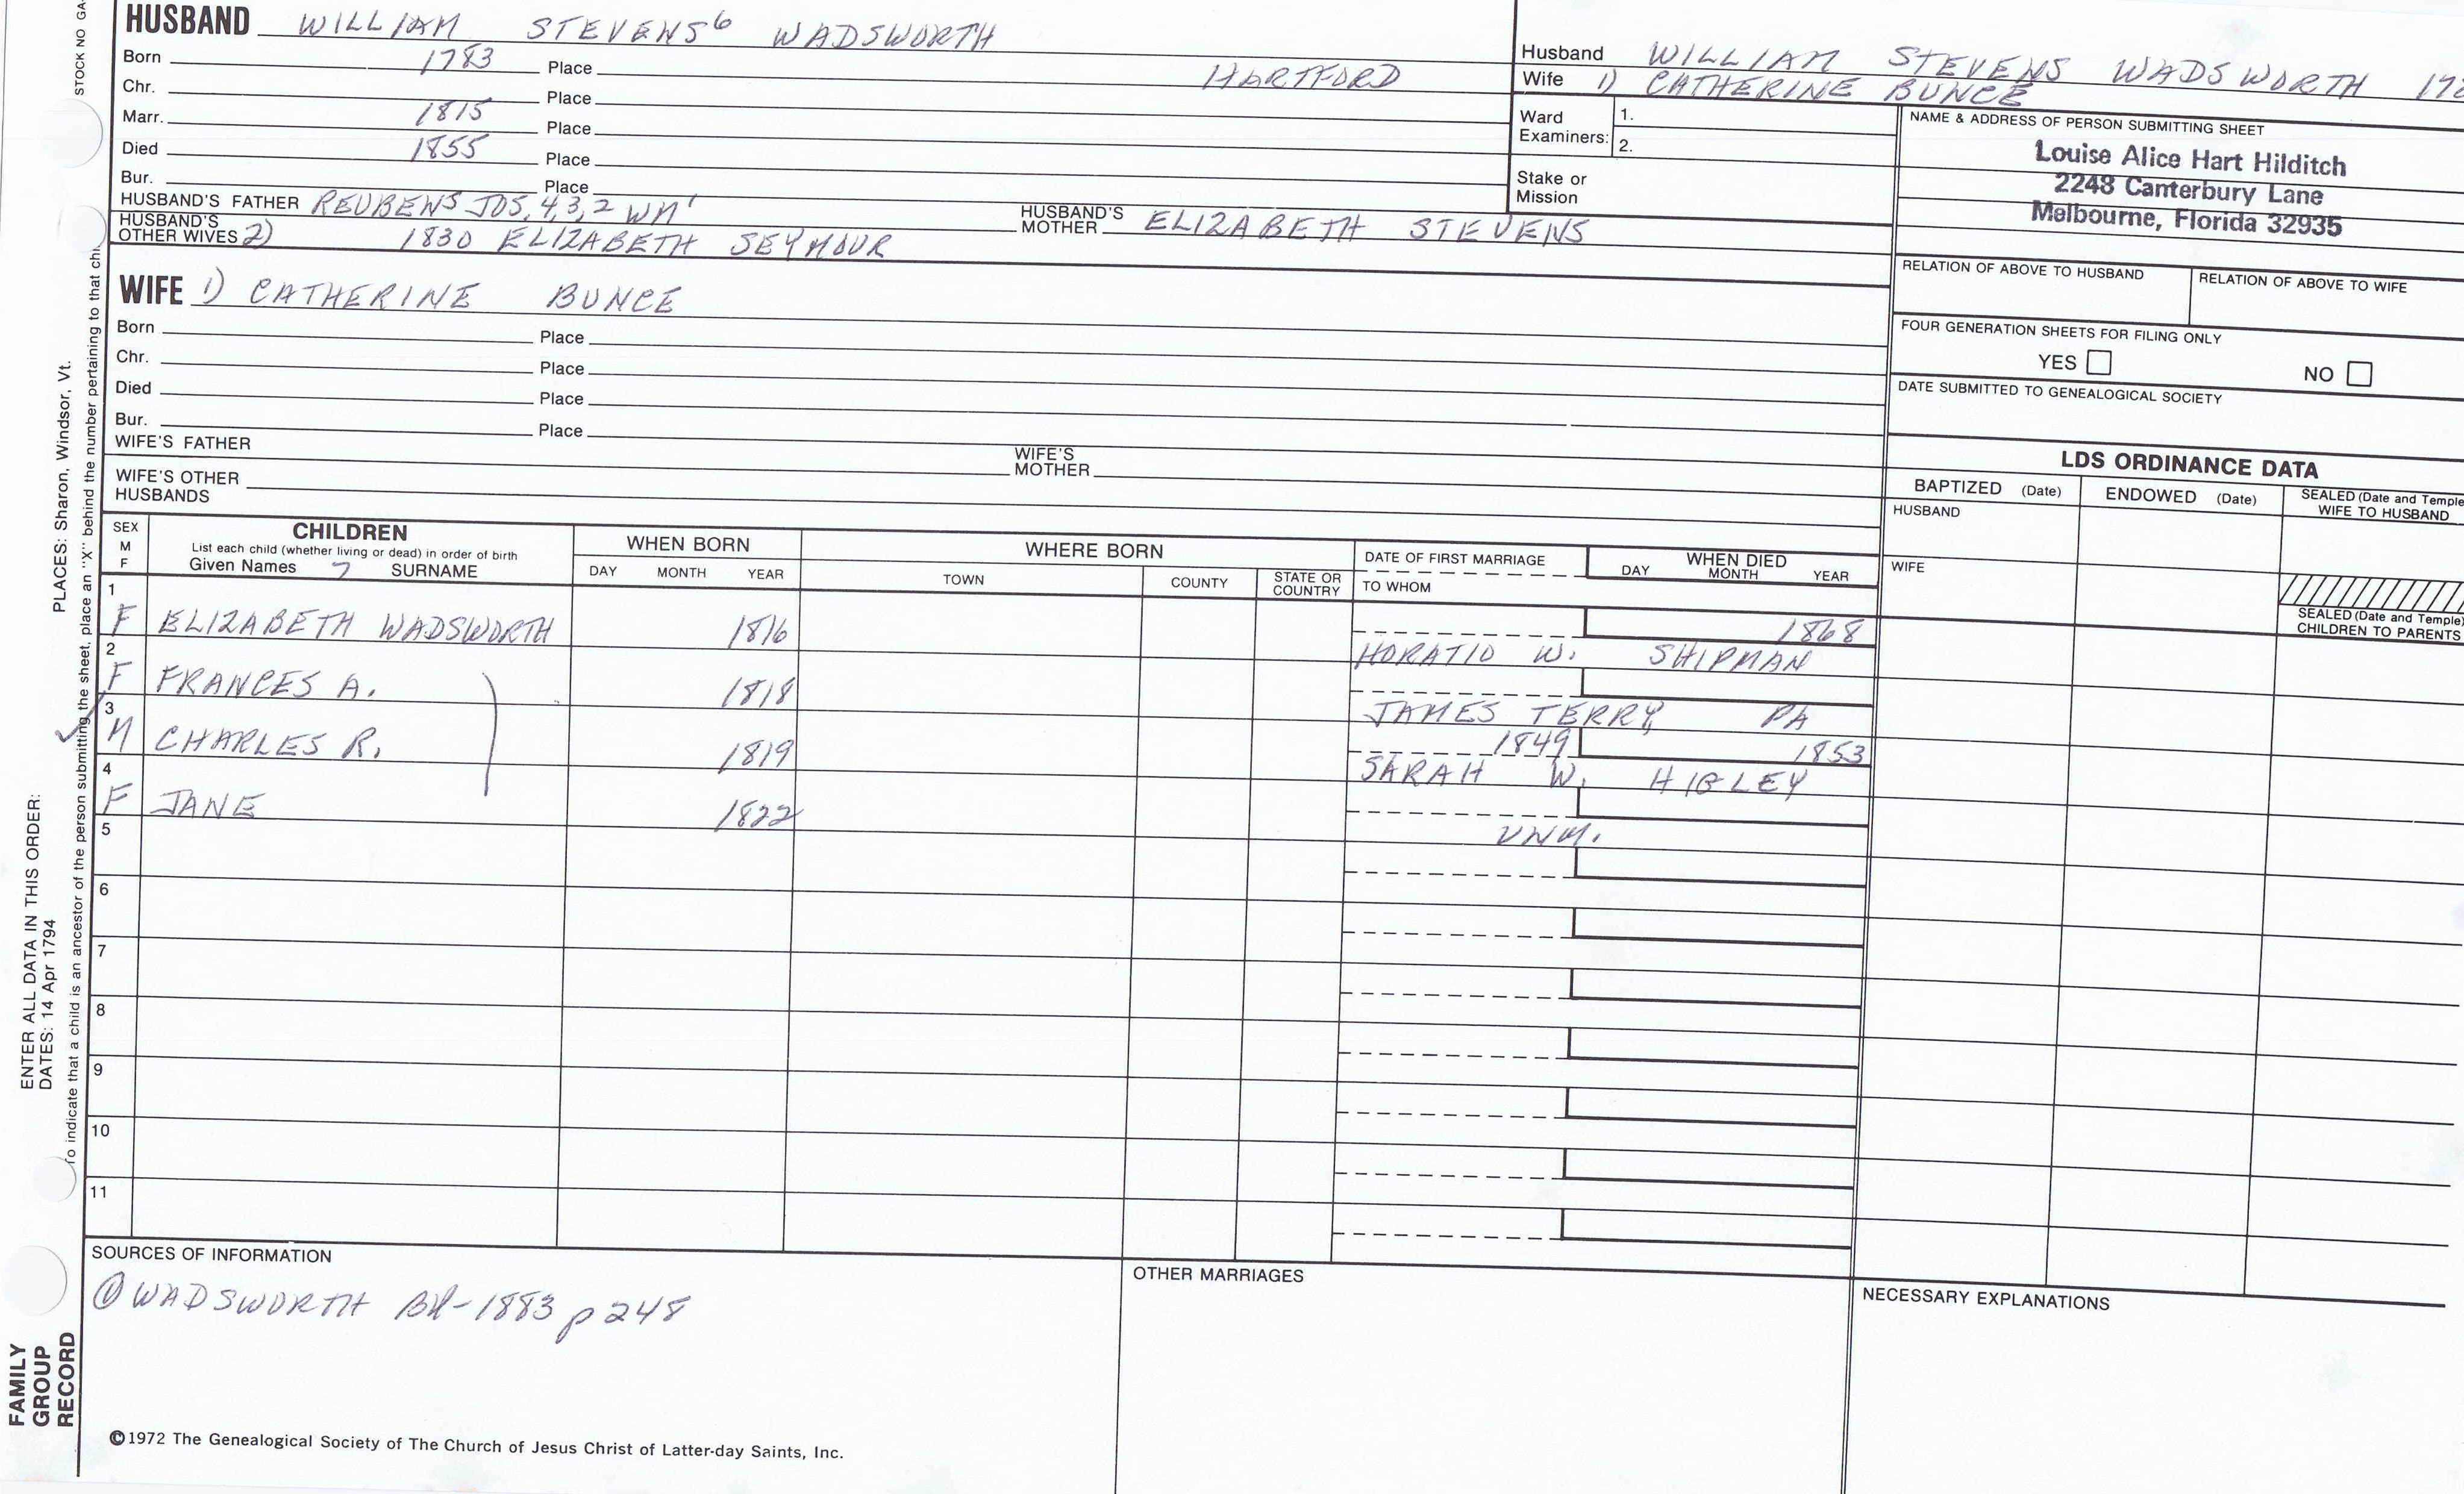 STOCK NO GA-
HUSBAND WILLIAM STEVENS⁶ WADSWORTH
Born 1783 Place HARTFORD
Chr. Place
Marr. 1815 Place
Died 1855 Place
Bur. Place
HUSBAND'S FATHER REUBEN⁵ JOS, 4, 3, 2 WM¹ HUSBAND'S MOTHER ELIZABETH STEVENS
HUSBAND'S OTHER WIVES 2) 1830 ELIZABETH SEYMOUR
Husband WILLIAM STEVENS WADSWORTH 178
Wife 1) CATHERINE BUNCE
Ward Examiners: 1.
2.
Stake or Mission
NAME & ADDRESS OF PERSON SUBMITTING SHEET
Louise Alice Hart Hilditch
2248 Canterbury Lane
Melbourne, Florida 32935
RELATION OF ABOVE TO HUSBAND RELATION OF ABOVE TO WIFE
FOUR GENERATION SHEETS FOR FILING ONLY
YES NO
DATE SUBMITTED TO GENEALOGICAL SOCIETY
WIFE 1) CATHERINE BUNCE
Born Place
Chr. Place
Died Place
Bur. Place
WIFE'S FATHER WIFE'S MOTHER
WIFE'S OTHER HUSBANDS
LDS ORDINANCE DATA
BAPTIZED (Date) ENDOWED (Date) SEALED (Date and Temple) WIFE TO HUSBAND
HUSBAND
WIFE
SEALED (Date and Temple) CHILDREN TO PARENTS
SEX M F
CHILDREN
List each child (whether living or dead) in order of birth
Given Names 7 SURNAME
WHEN BORN
DAY MONTH YEAR
WHERE BORN
TOWN COUNTY STATE OR COUNTRY
DATE OF FIRST MARRIAGE
TO WHOM
WHEN DIED
DAY MONTH YEAR
1 F ELIZABETH WADSWORTH 1816 1868
HORATIO W. SHIPMAN
2 F FRANCES A. 1818
JAMES TERRY, PA
3 M CHARLES R. 1819 1849 1853
SARAH W. HIGLEY
4 F JANE 1822
UNM.
5
6
7
8
9
10
11
SOURCES OF INFORMATION
① WADSWORTH BK-1883 p 248
OTHER MARRIAGES
NECESSARY EXPLANATIONS
©1972 The Genealogical Society of The Church of Jesus Christ of Latter-day Saints, Inc.
FAMILY GROUP RECORD
ENTER ALL DATA IN THIS ORDER:
DATES: 14 Apr 1794
PLACES: Sharon, Windsor, Vt.
To indicate that a child is an ancestor of the person submitting the sheet, place an "X" behind the number pertaining to that chi